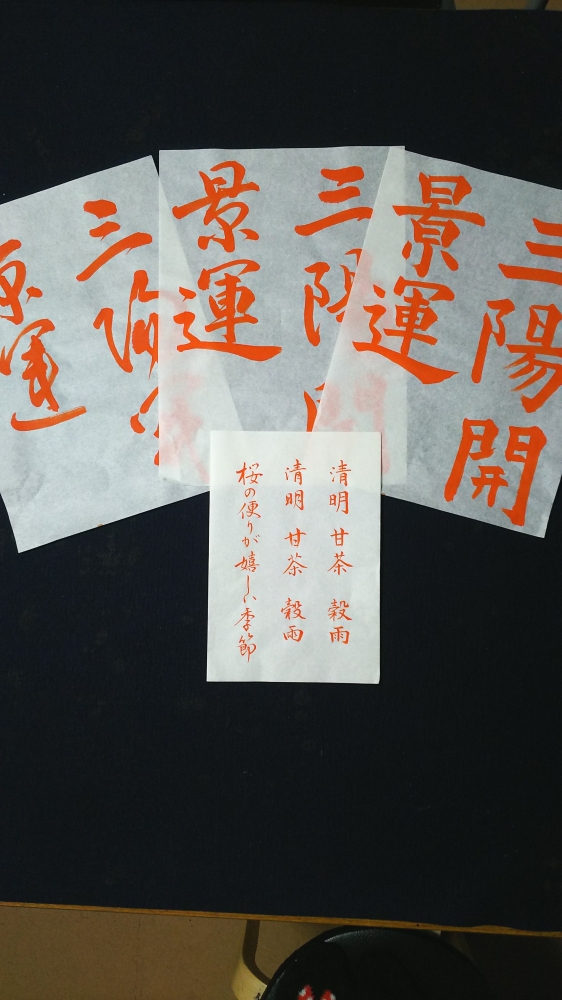 三陽開
景運
三陽
景運
三陽開
景運
清明 甘茶 穀雨
清明 甘茶 穀雨
桜の便りが嬉しい季節